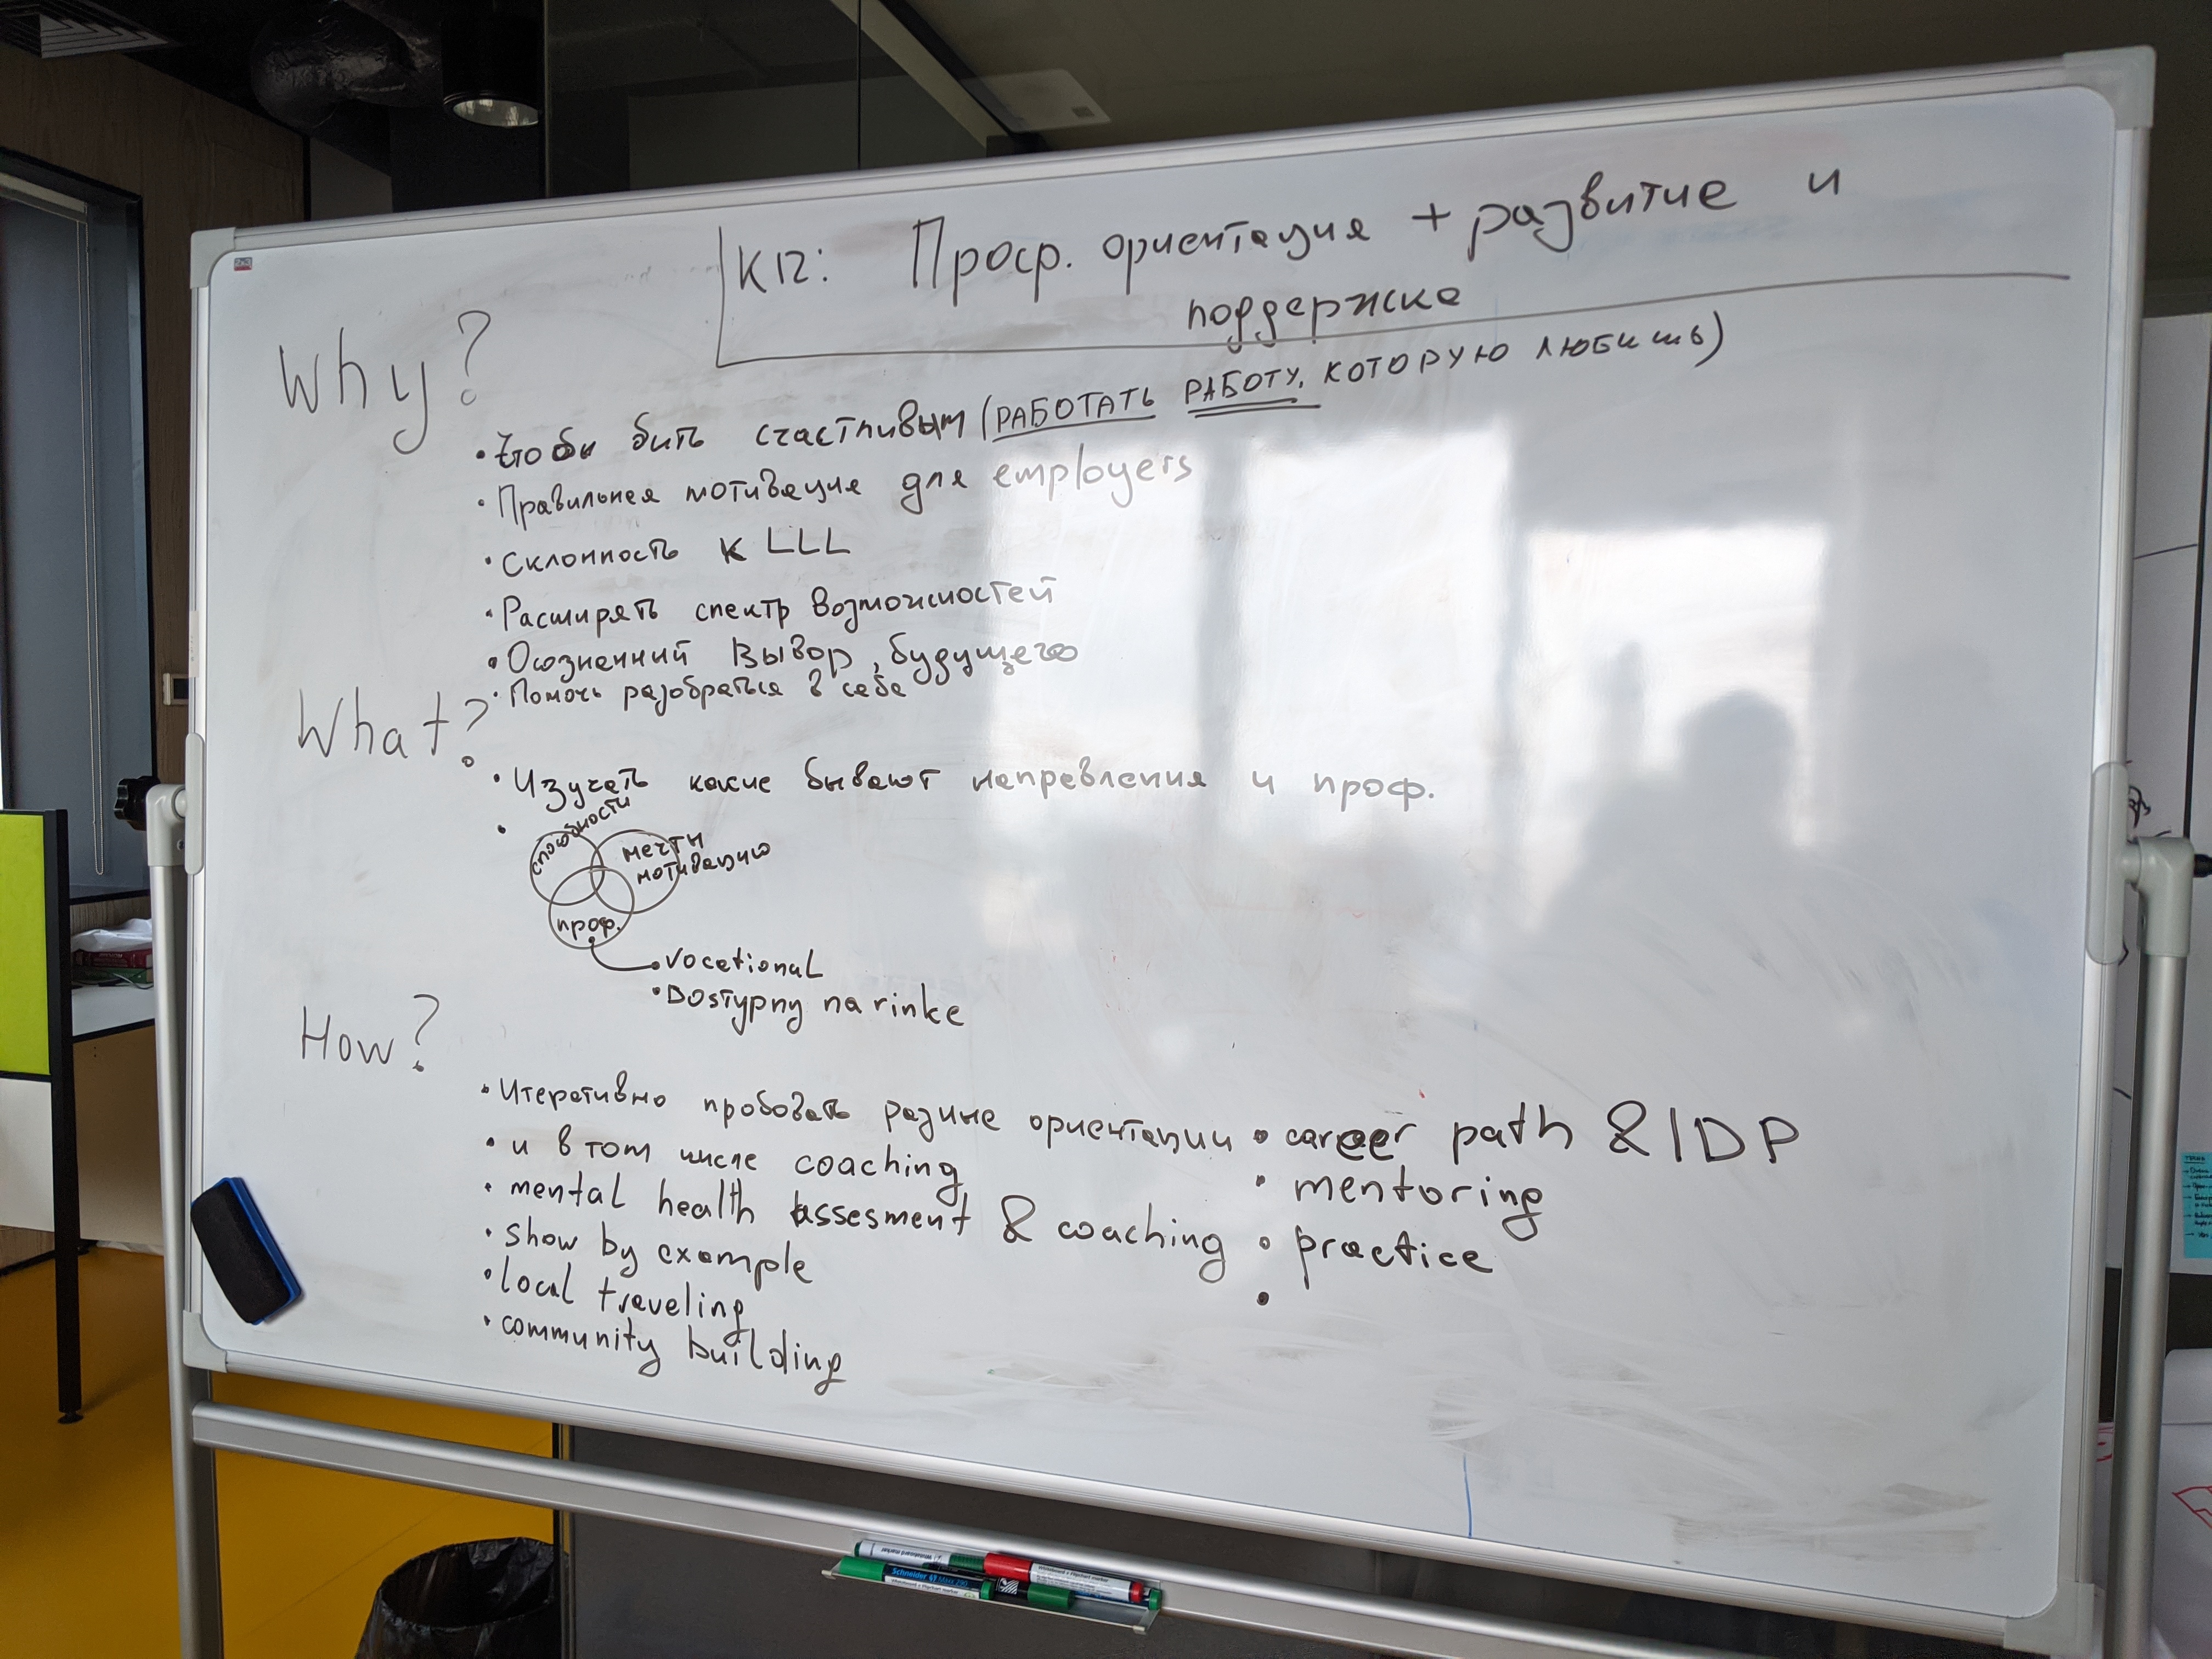 K12: Проф. ориентация + развитие и
поддержка
Why?
• Чтоби бить счастливым (РАБОТАТЬ РАБОТУ, КОТОРУЮ ЛЮБИШЬ)
• Правильная мотивация для employers
• Склонность к LLL
• Расширять спектр возможностей
• Осознанний Вывор, будущего
• Помочь разобраться в себе
What?
• Изучать какие бывают направления и проф.
•
способности
мечты
мотивацию
проф.
• vocational
• Dostypny na rinke
How?
• Итеративно пробовать разные ориентации
• и в том числе coaching
• mental health assesment & coaching
• show by example
• local traveling
• community building
• career path & IDP
• mentoring
• practice
•
Schneider